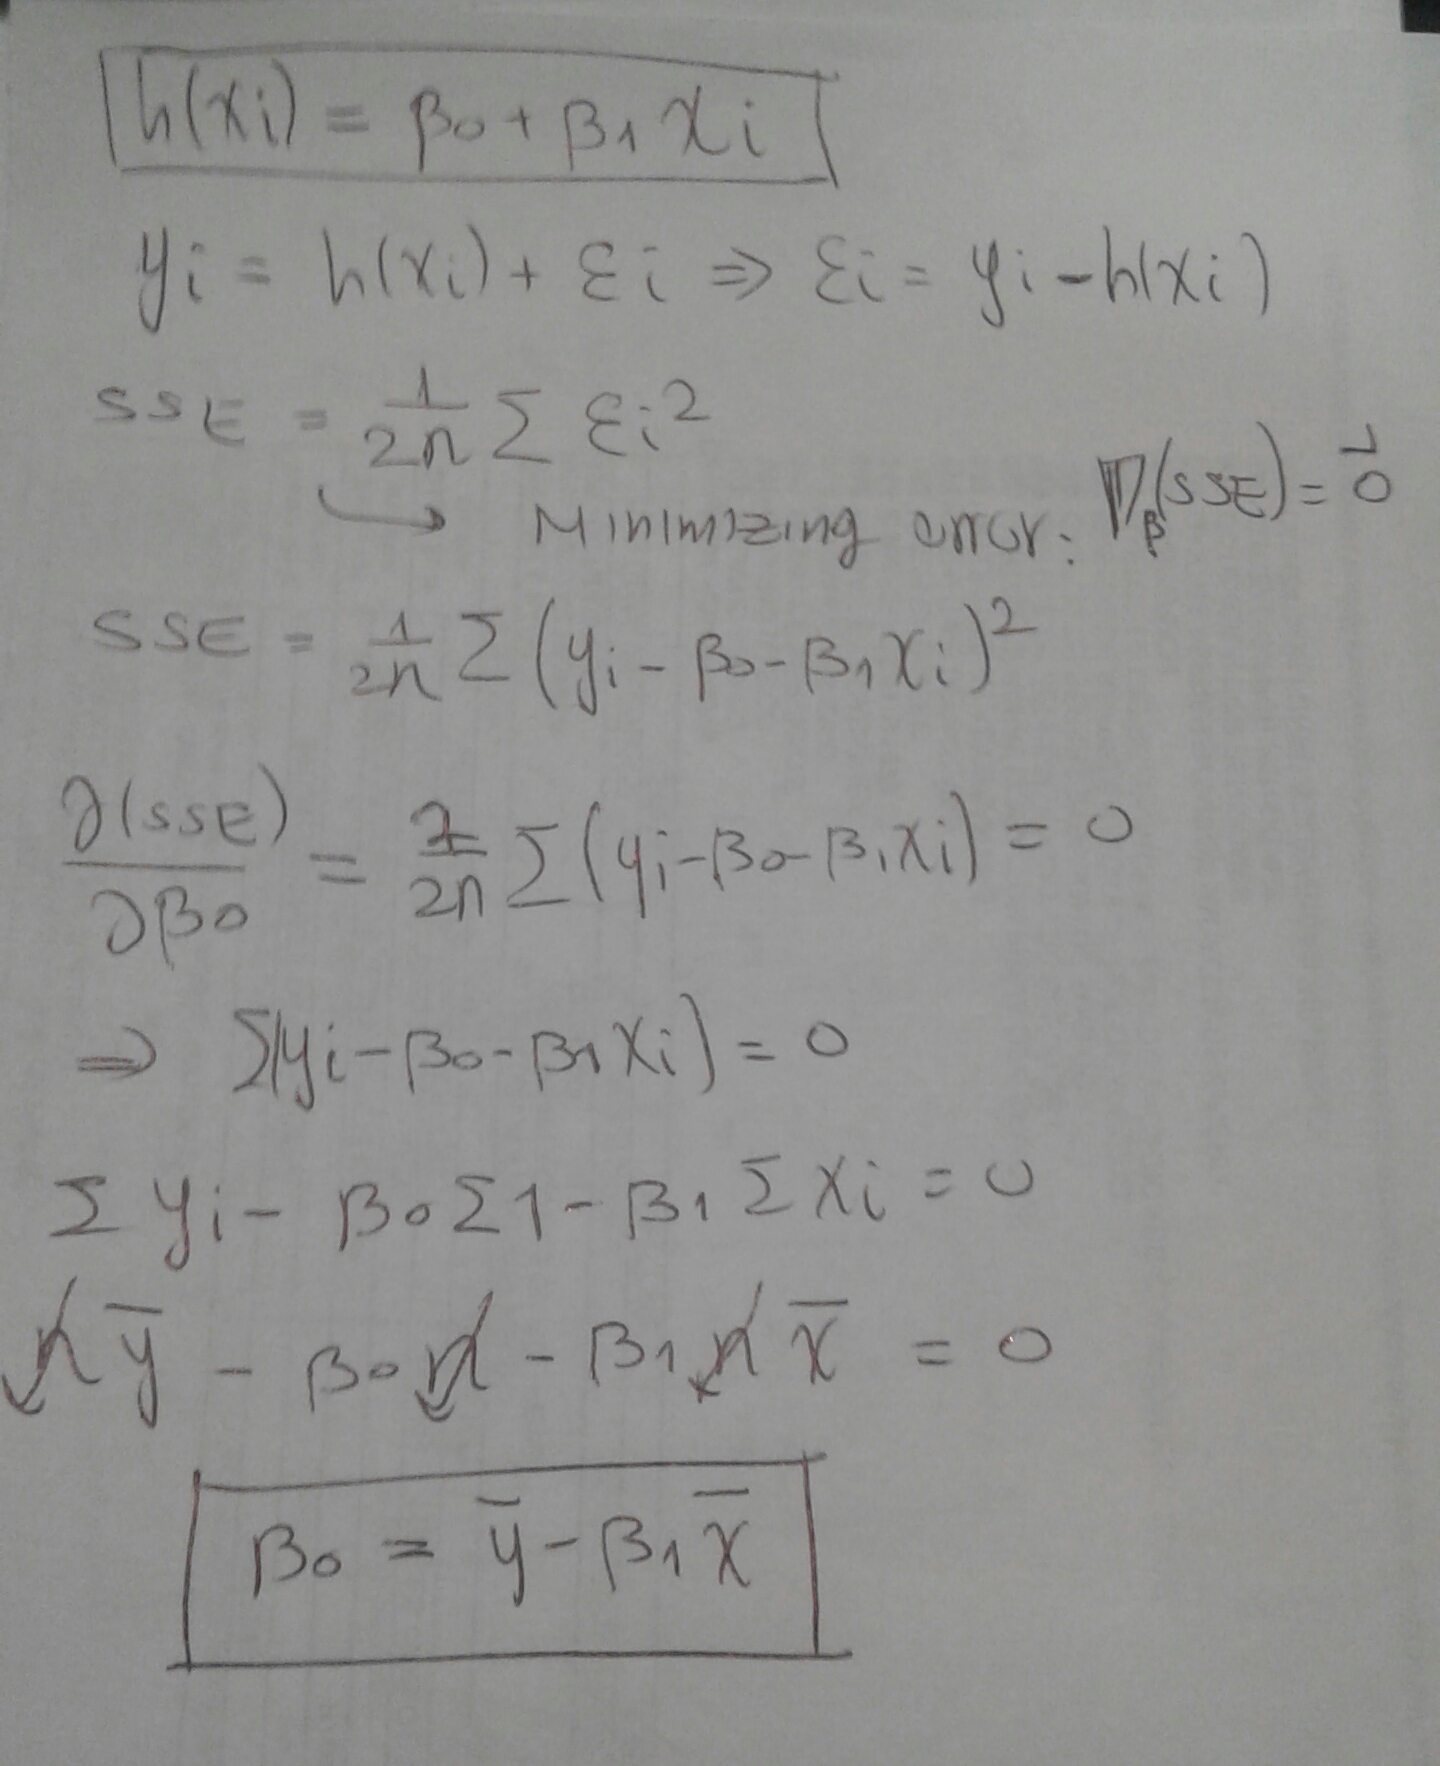 h(xi) = β0 + β1 xi
yi = h(xi) + εi ⇒ εi = yi - h(xi)
SSE = 1/2n Σ εi²
Minimizing error: ∇β(SSE) = 0⃗
SSE = 1/2n Σ (yi - β0 - β1 xi)²
∂(SSE)/∂β0 = 2/2n Σ (yi - β0 - β1 xi) = 0
⇒ Σ(yi - β0 - β1 xi) = 0
Σ yi - β0 Σ1 - β1 Σ xi = 0
n ȳ - β0 n - β1 n x̄ = 0
β0 = ȳ - β1 x̄